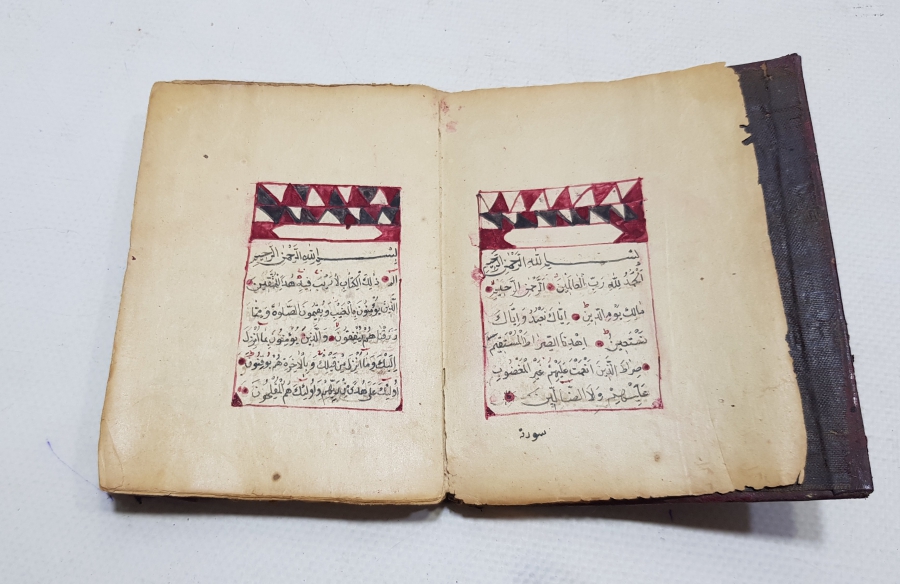 بسم الله الرحمن الرحيم
الحمد لله رب العالمين الرحمن الرحيم
مالك يوم الدين اياك نعبد واياك
نستعين اهدنا الصراط المستقيم
صراط الذين انعمت عليهم غير المغضوب
عليهم ولا الضالين
سورة
بسم الله الرحمن الرحيم
الم ذلك الكتاب لا ريب فيه هدى للمتقين
الذين يؤمنون بالغيب ويقيمون الصلوة ومما
رزقنهم ينفقون والذين يؤمنون بما انزل
اليك وما انزل من قبلك وبالاخرة هم يوقنون
اولئك على هدى من ربهم واولئك هم المفلحون